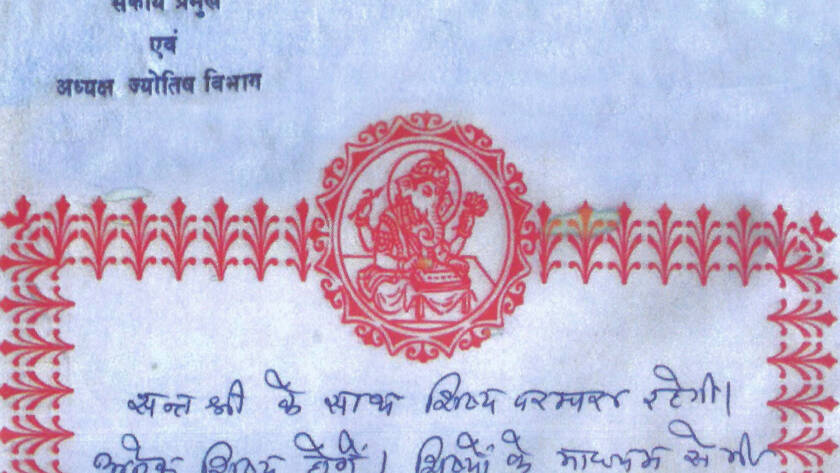 संकाय प्रमुख
एवं
अध्यक्ष ज्योतिष विभाग
सन्त श्री के साथ शिष्य परम्परा रहेगी।
अनेक शिष्य होंगे। शिष्यों के माध्यम से भी